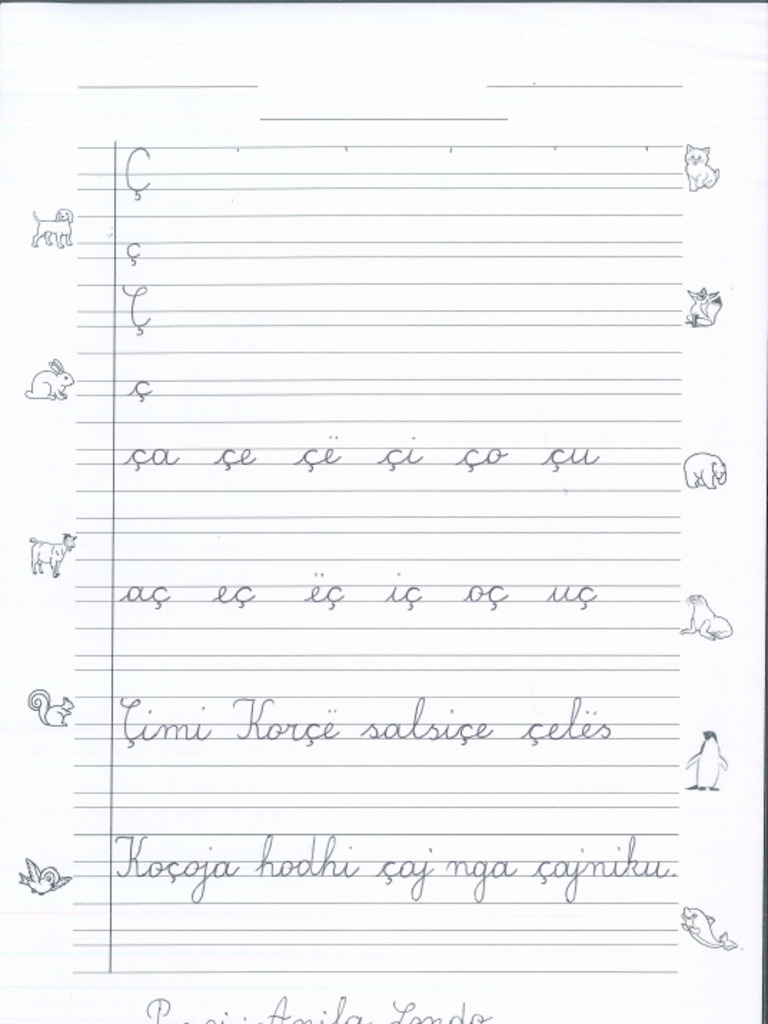 Ç
ç
Ç
ç
ça çe çë çi ço çu
aç eç ëç iç oç uç
Çimi Korçë salsiçe çelës
Koçoja hodhi çaj nga çajniku.
Anila